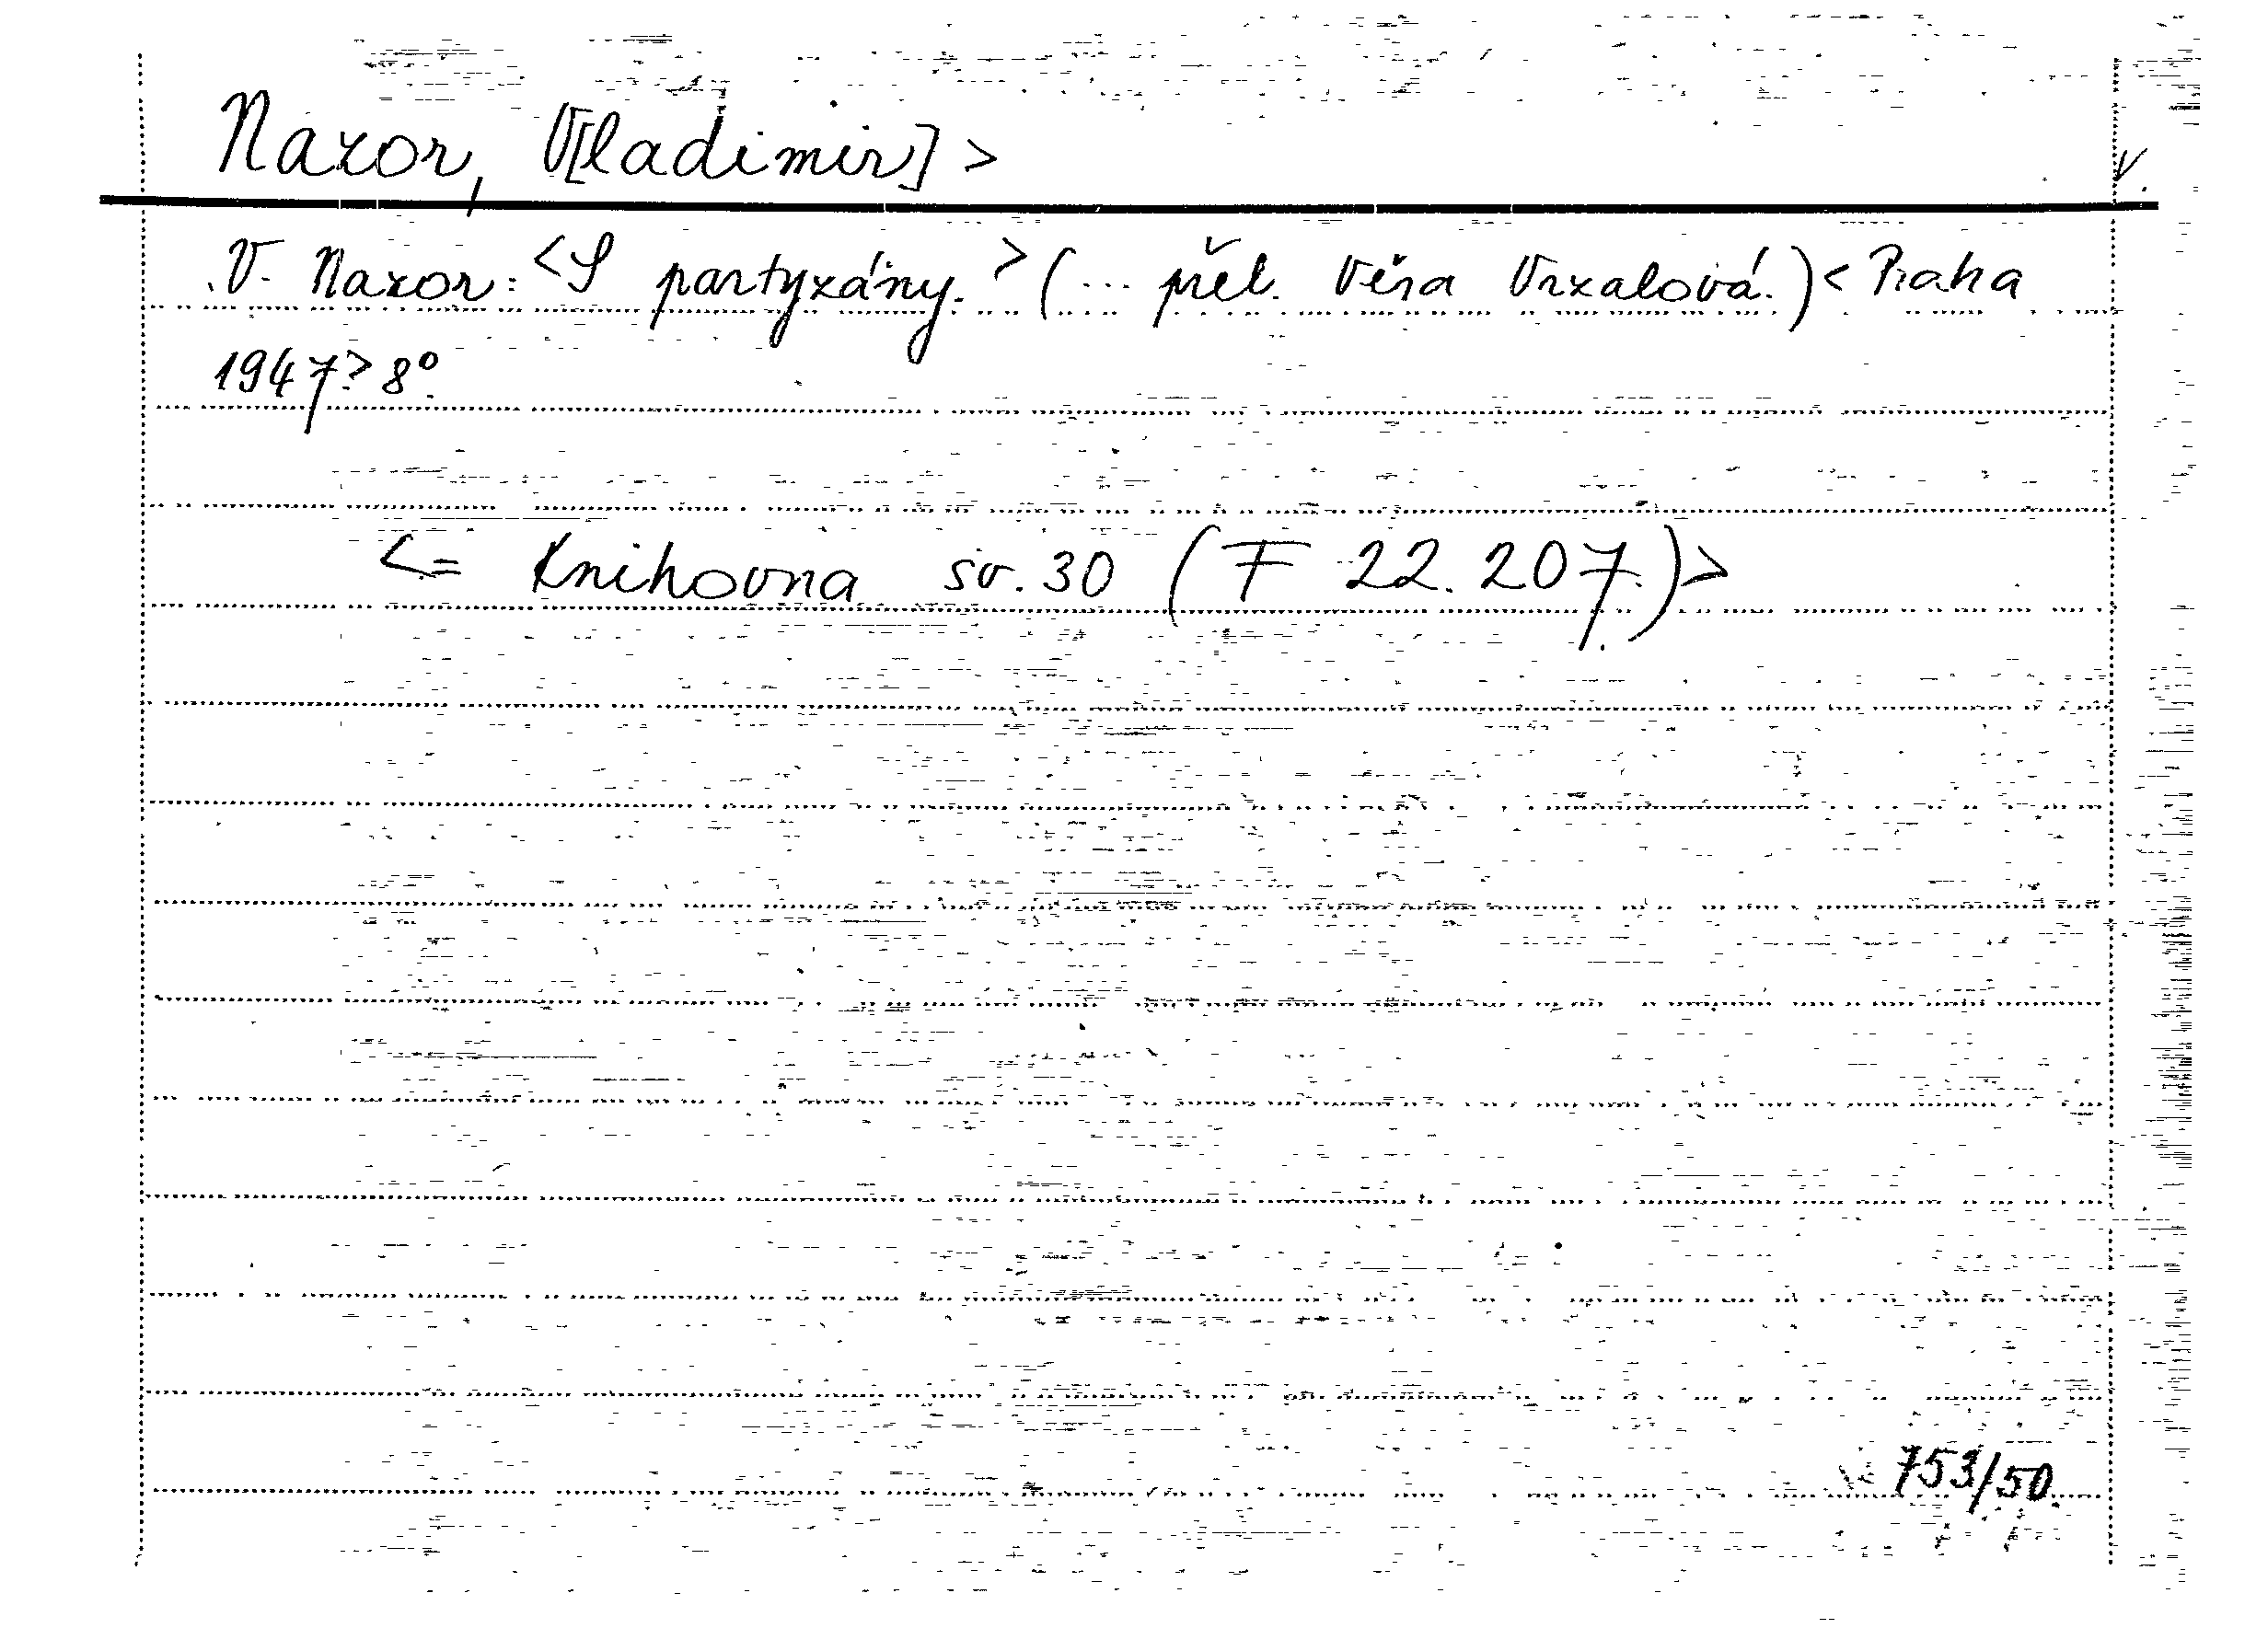 Nazor, V[ladimir] > V.
V. Nazor: <S partyzány.> (... přel. Věra Vrzalová.) < Praha
1947> 8°.
<= Knihovna sv. 30 (F 22.207.)>
753/50.